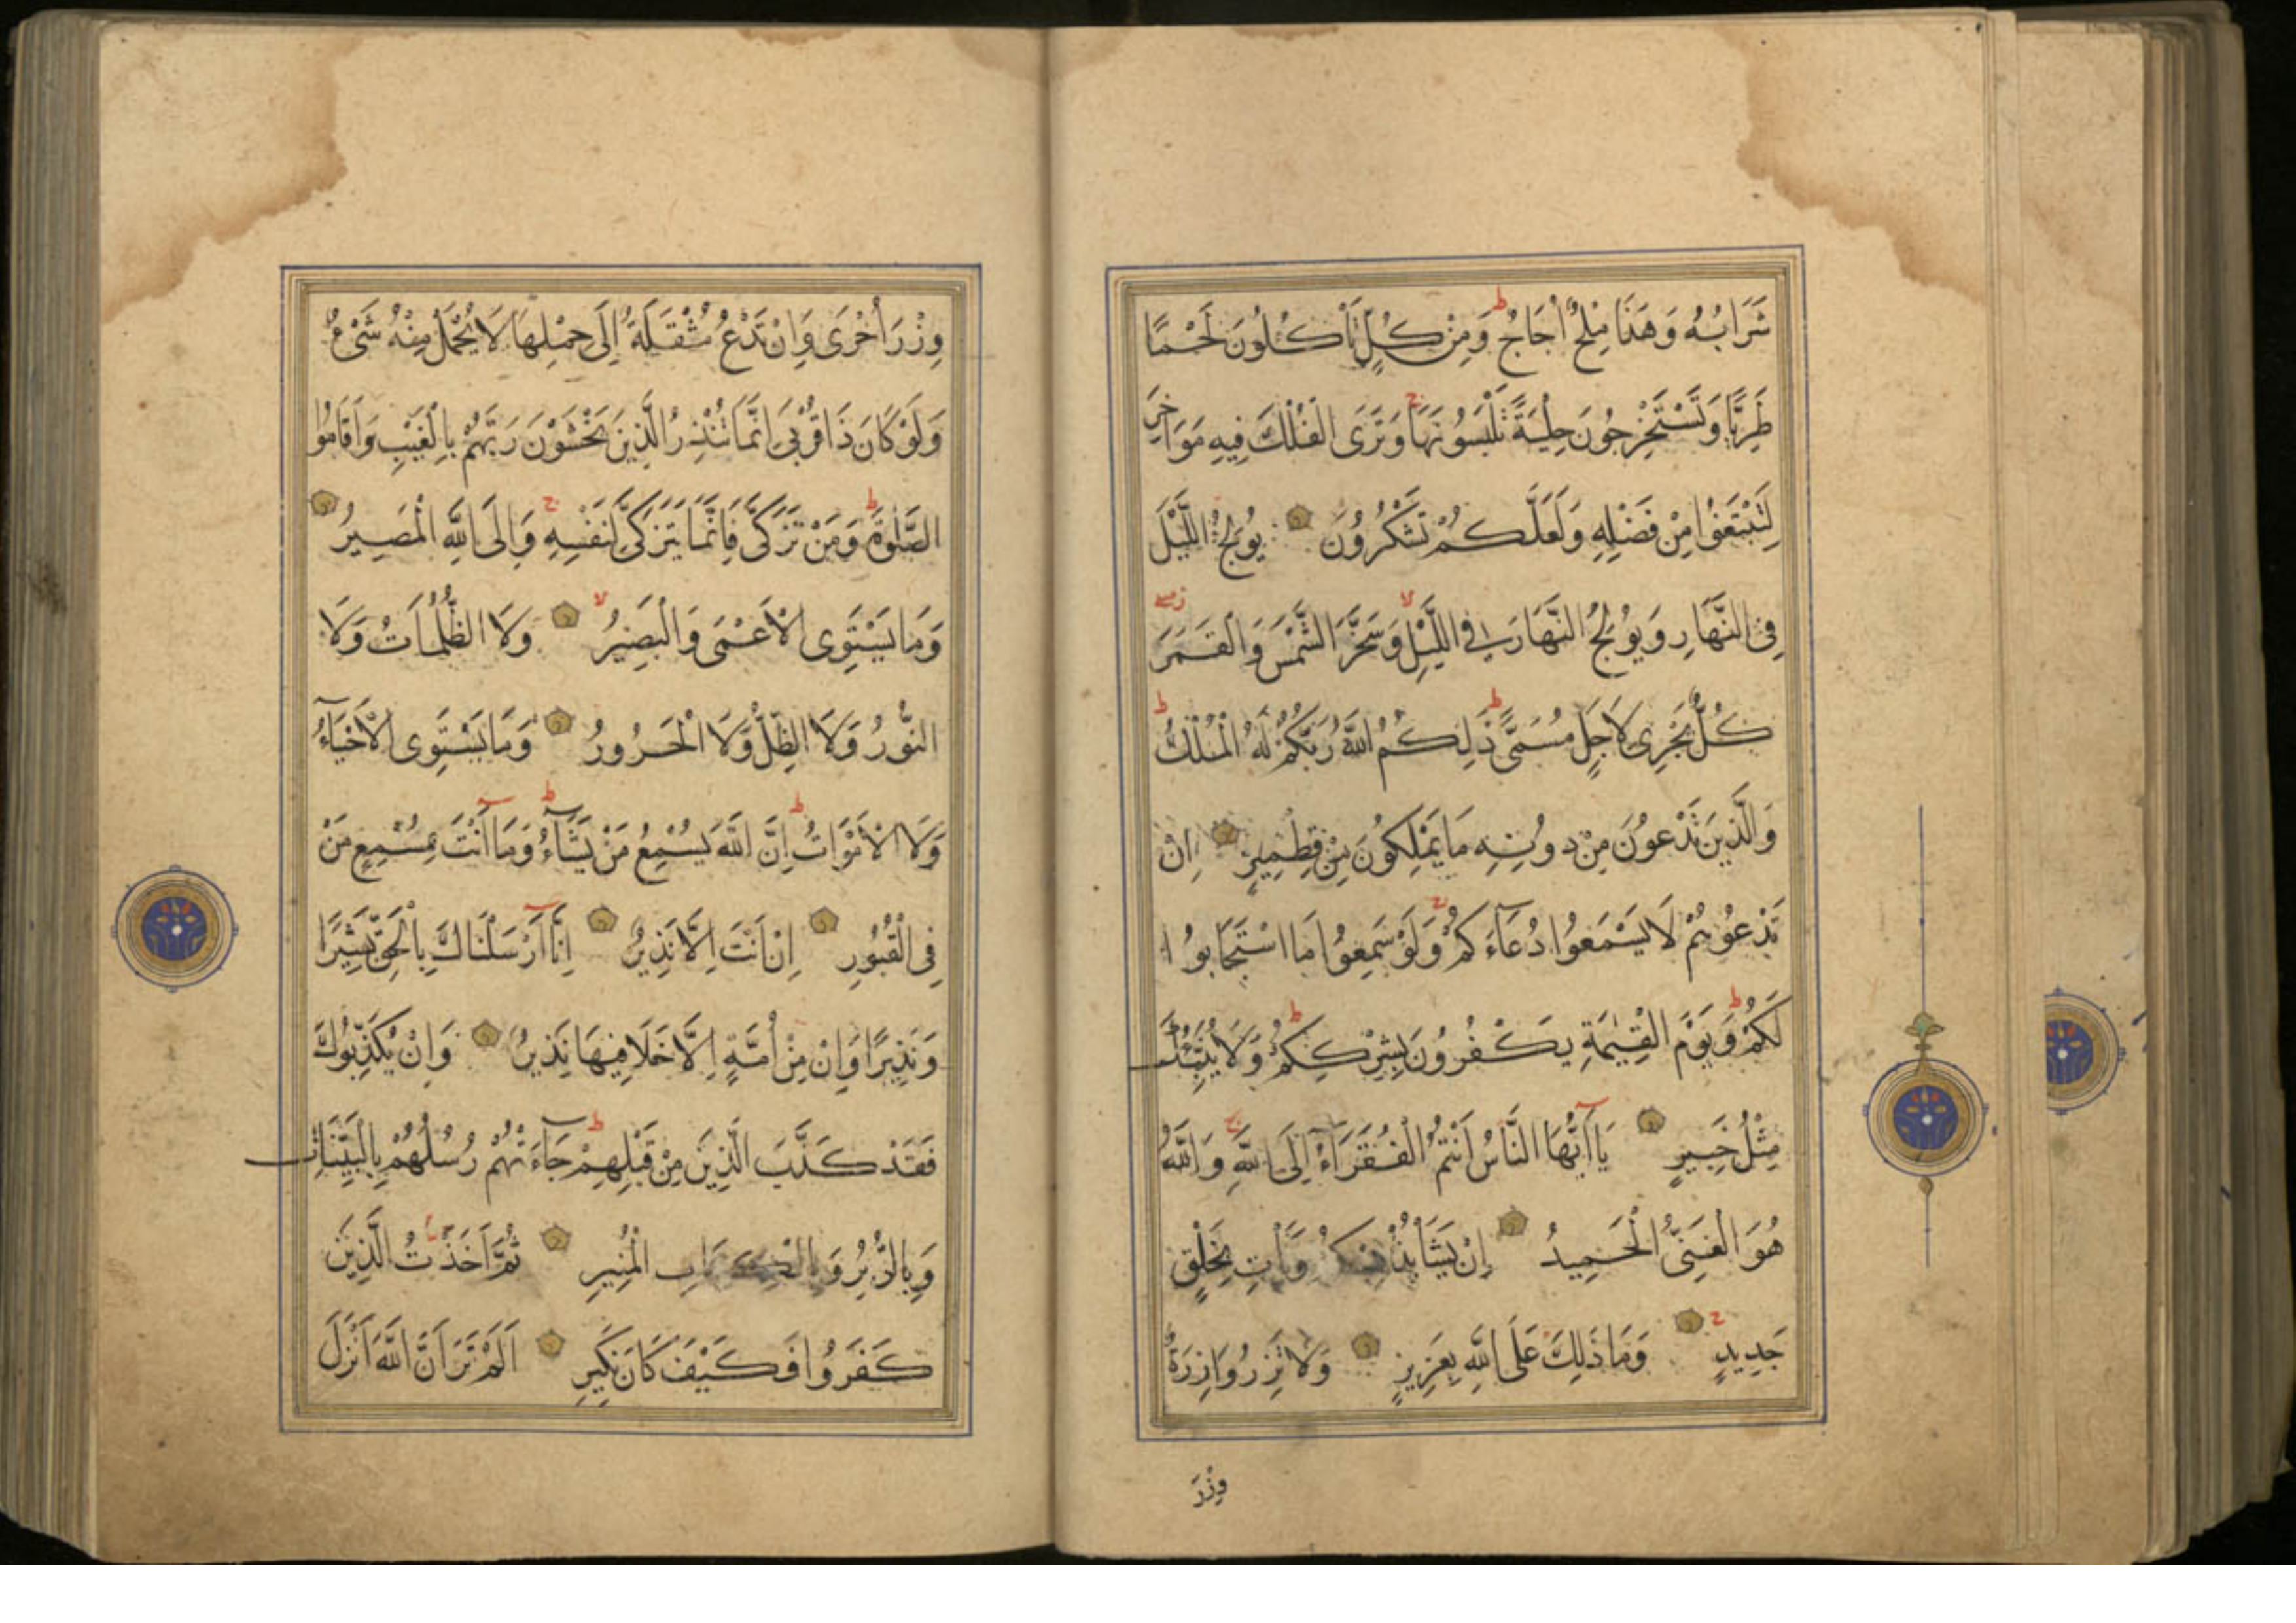 شَرَابُهُ وَهَذَا مِلْحٌ أُجَاجٌ وَمِنْ كُلٍّ تَأْكُلُونَ لَحْمًا
طَرِيًّا وَتَسْتَخْرِجُونَ حِلْيَةً تَلْبَسُونَهَا وَتَرَى الْفُلْكَ فِيهِ مَوَاخِرَ
لِتَبْتَغُوا مِنْ فَضْلِهِ وَلَعَلَّكُمْ تَشْكُرُونَ يُولِجُ اللَّيْلَ
فِي النَّهَارِ وَيُولِجُ النَّهَارَ فِي اللَّيْلِ وَسَخَّرَ الشَّمْسَ وَالْقَمَرَ
كُلٌّ يَجْرِي لِأَجَلٍ مُسَمًّى ذَلِكُمُ اللَّهُ رَبُّكُمْ لَهُ الْمُلْكُ
وَالَّذِينَ تَدْعُونَ مِنْ دُونِهِ مَا يَمْلِكُونَ مِنْ قِطْمِيرٍ اِنْ
تَدْعُوهُمْ لَا يَسْمَعُوا دُعَاءَكُمْ وَلَوْ سَمِعُوا مَا اسْتَجَابُوا
لَكُمْ وَيَوْمَ الْقِيٰمَةِ يَكْفُرُونَ بِشِرْكِكُمْ وَلَا يُنَبِّئُكَ
مِثْلُ خَبِيرٍ يَا أَيُّهَا النَّاسُ أَنْتُمُ الْفُقَرَاءُ إِلَى اللَّهِ وَاللَّهُ
هُوَ الْغَنِيُّ الْحَمِيدُ إِنْ يَشَأْ يُذْهِبْكُمْ وَيَأْتِ بِخَلْقٍ
جَدِيدٍ وَمَا ذَلِكَ عَلَى اللَّهِ بِعَزِيزٍ وَلَا تَزِرُ وَازِرَةٌ
وِزْرَ
وِزْرَ أُخْرَى وَإِنْ تَدْعُ مُثْقَلَةٌ إِلَى حِمْلِهَا لَا يُحْمَلْ مِنْهُ شَيْءٌ
وَلَوْ كَانَ ذَا قُرْبَى اِنَّمَا تُنْذِرُ الَّذِينَ يَخْشَوْنَ رَبَّهُمْ بِالْغَيْبِ وَأَقَامُوا
الصَّلٰوةَ وَمَنْ تَزَكَّى فَاِنَّمَا يَتَزَكَّى لِنَفْسِهِ وَاِلَى اللَّهِ الْمَصِيرُ
وَمَا يَسْتَوِي الْأَعْمَى وَالْبَصِيرُ وَلَا الظُّلُمَاتُ وَلَا
النُّورُ وَلَا الظِّلُّ وَلَا الْحَرُورُ وَمَا يَسْتَوِي الْأَحْيَاءُ
وَلَا الْأَمْوَاتُ اِنَّ اللَّهَ يُسْمِعُ مَنْ يَشَاءُ وَمَا أَنْتَ بِمُسْمِعٍ مَنْ
فِي الْقُبُورِ اِنْ اَنْتَ اِلَّا نَذِيرٌ اِنَّا أَرْسَلْنَاكَ بِالْحَقِّ بَشِيرًا
وَنَذِيرًا وَاِنْ مِنْ أُمَّةٍ اِلَّا خَلَا فِيهَا نَذِيرٌ وَاِنْ يُكَذِّبُوكَ
فَقَدْ كَذَّبَ الَّذِينَ مِنْ قَبْلِهِمْ جَاءَتْهُمْ رُسُلُهُمْ بِالْبَيِّنَاتِ
وَبِالزُّبُرِ وَبِالْكِتَابِ الْمُنِيرِ ثُمَّ اَخَذْتُ الَّذِينَ
كَفَرُوا فَكَيْفَ كَانَ نَكِيرِ اَلَمْ تَرَ اَنَّ اللَّهَ اَنْزَلَ